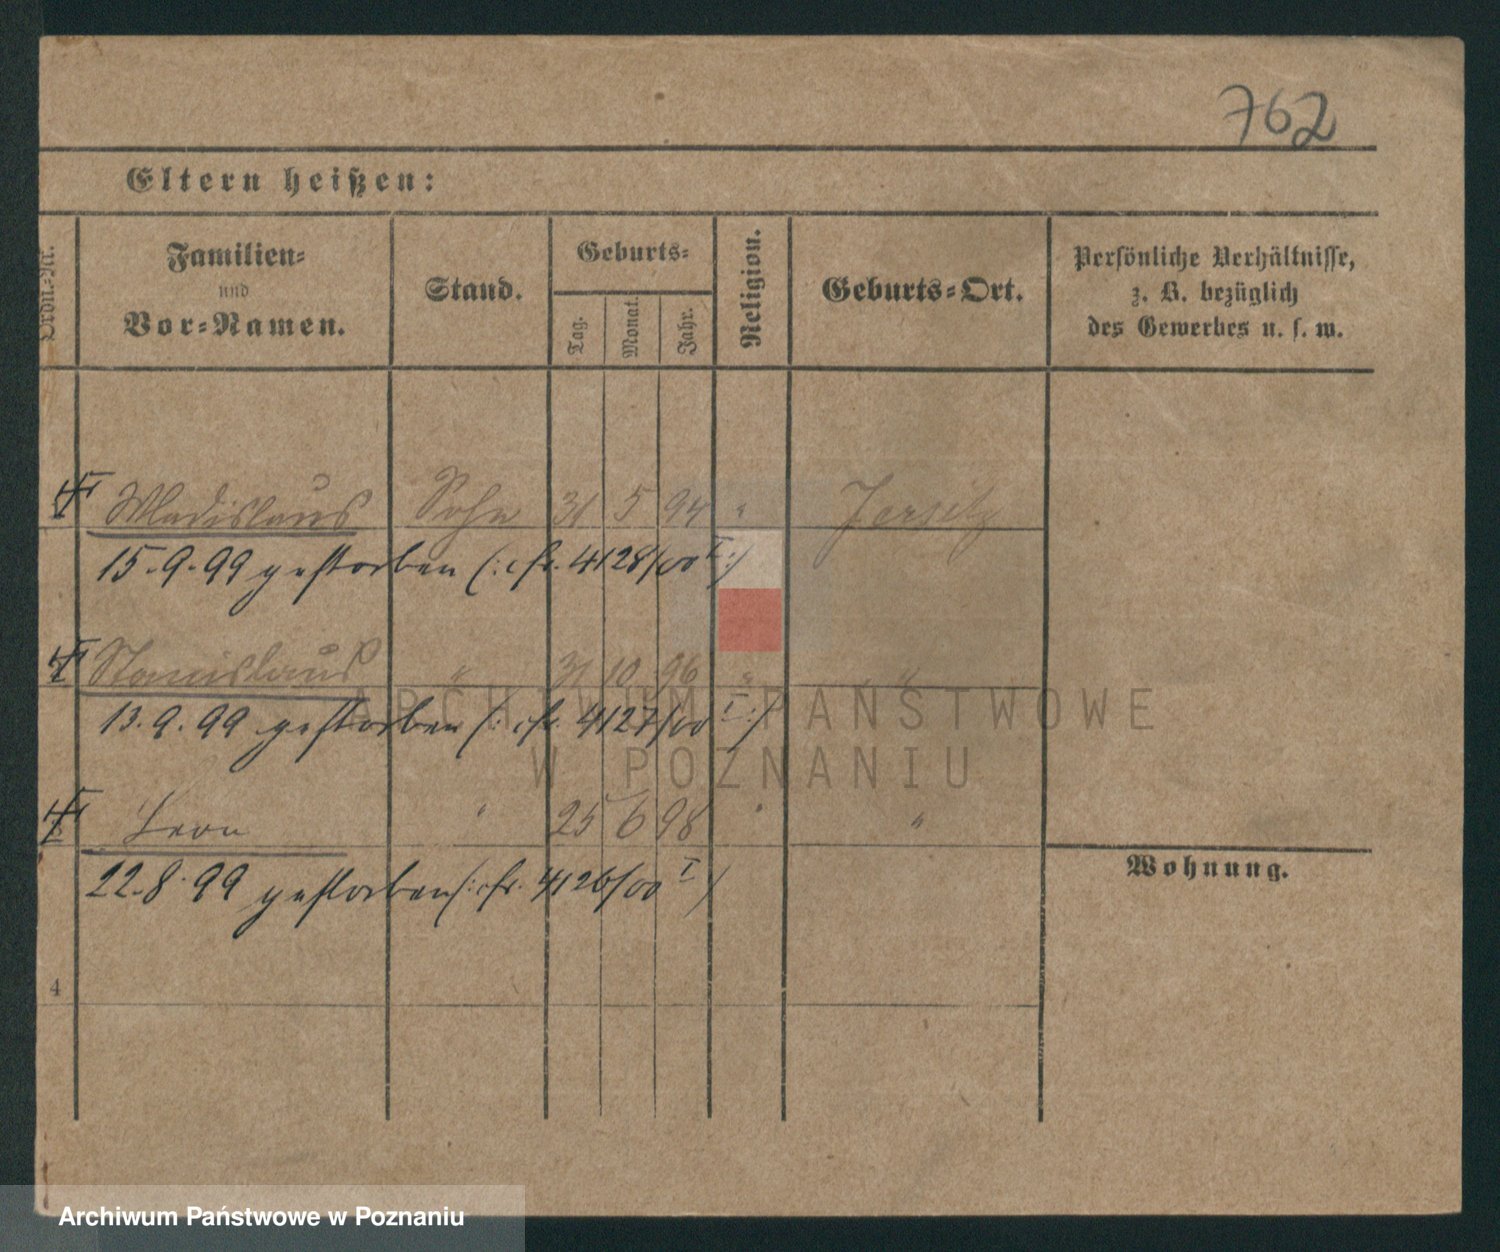 762
Eltern heißen:
Ordn.-Nr.
Familien-
und
Vor-Namen.
Stand.
Geburts-
Tag.
Monat.
Jahr.
Religion.
Geburts-Ort.
Persönliche Verhältnisse,
z. B. bezüglich
des Gewerbes u. s. w.
Wladislaus Sohn 31 5 94 " Jersitz
15.9.99 gestorben (: cfr. 4128/00 I :)
Stanislaus " 31 10 96 " "
13.9.99 gestorben (: cfr. 4127/00 I :)
Leon " 25 6 98 " "
22.8.99 gestorben (: cfr. 4126/00 I )
Wohnung.
4
ARCHIWUM PAŃSTWOWE
W POZNANIU
Archiwum Państwowe w Poznaniu